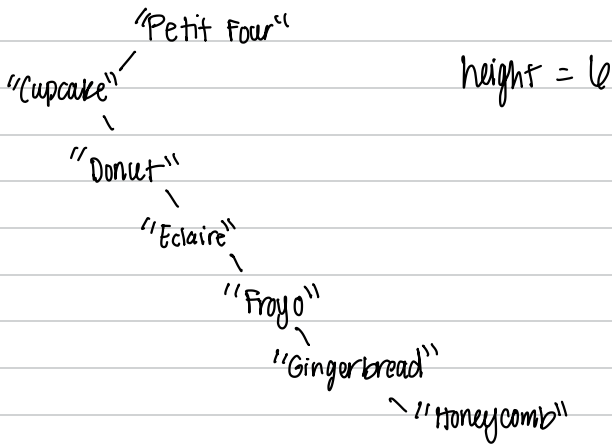 "Petit Four"
height = 6
"Cupcake"
"Donut"
"Eclaire"
"Froyo"
"Gingerbread"
"Honeycomb"